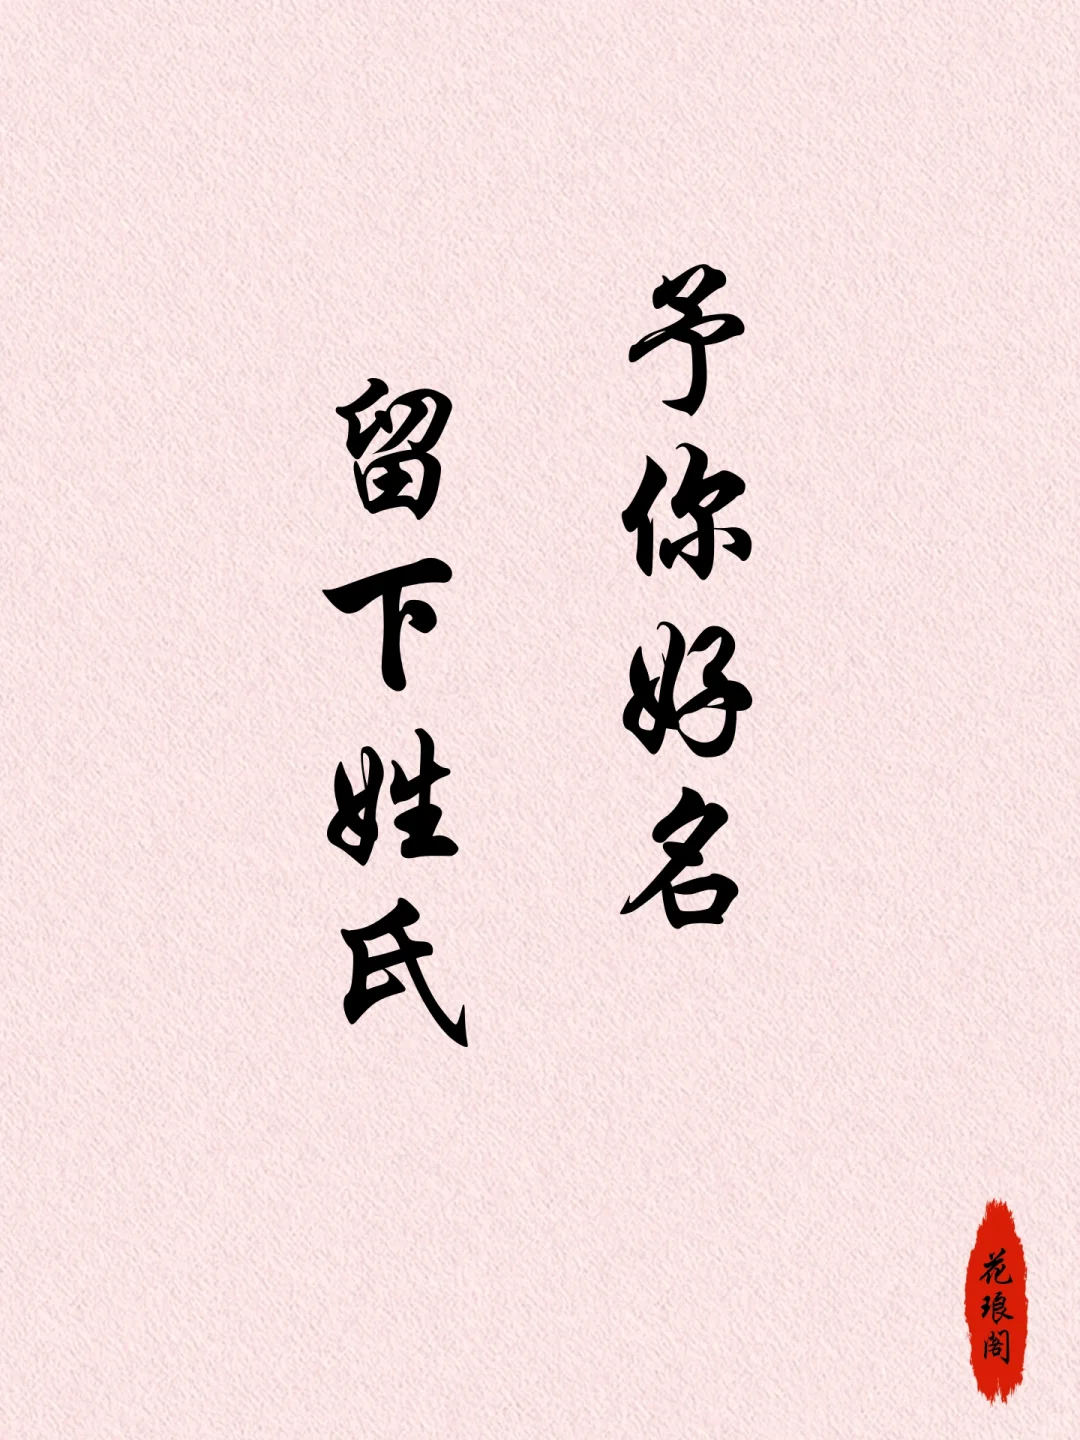 予你好名
留下姓氏
花琅阁